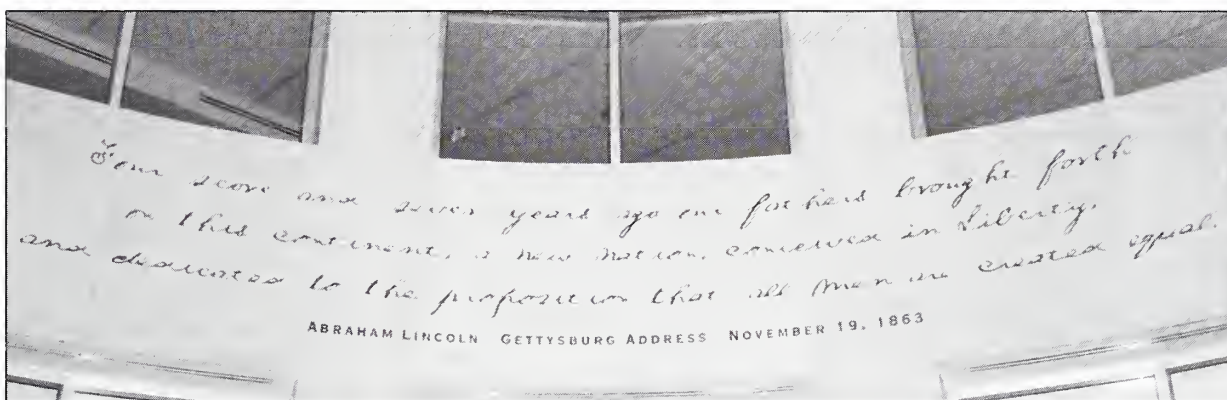 Four score and seven years ago our fathers brought forth
on this continent, a new nation, conceived in Liberty,
and dedicated to the proposition that all men are created equal.
ABRAHAM LINCOLN GETTYSBURG ADDRESS NOVEMBER 19, 1863